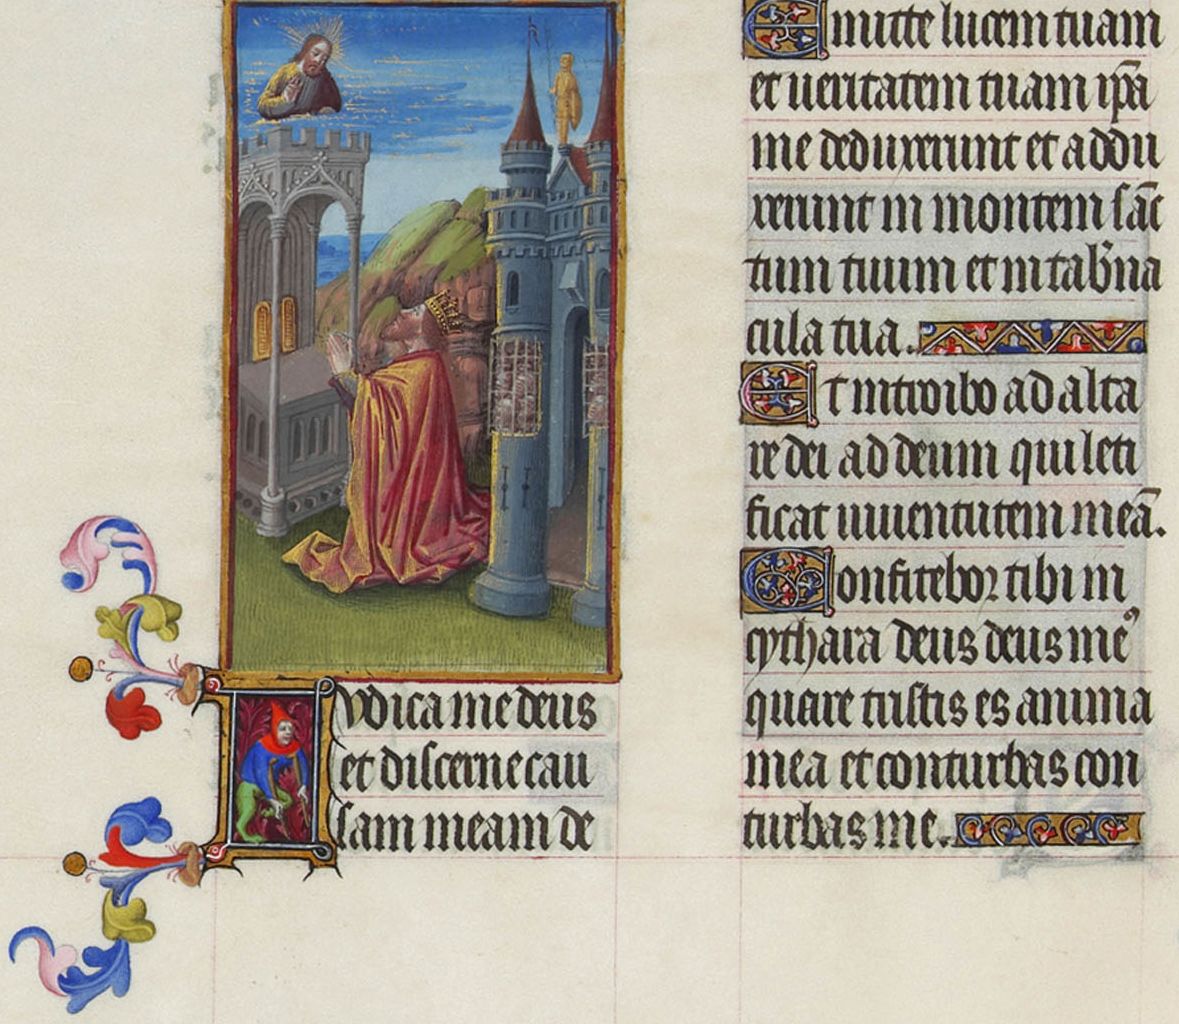 Iudica me deus
et discerne cau
sam meam de
Emitte lucem tuam
et ueritatem tuam ip̄a
me deduxerunt et addu
xerunt in montem sāc
tum tuum et in tab'na
cula tua.
Et introibo ad alta
re dei ad deum qui leti
ficat iuuentutem meā.
Confitebor tibi in
cythara deus deus me⁹
quare tristis es anima
mea et conturbas con
turbas me.